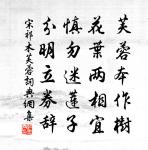 芙蓉本作樹
花葉兩相宜
慎勿迷蓮子
分明立券辭
宋祁木芙蓉詞典網集